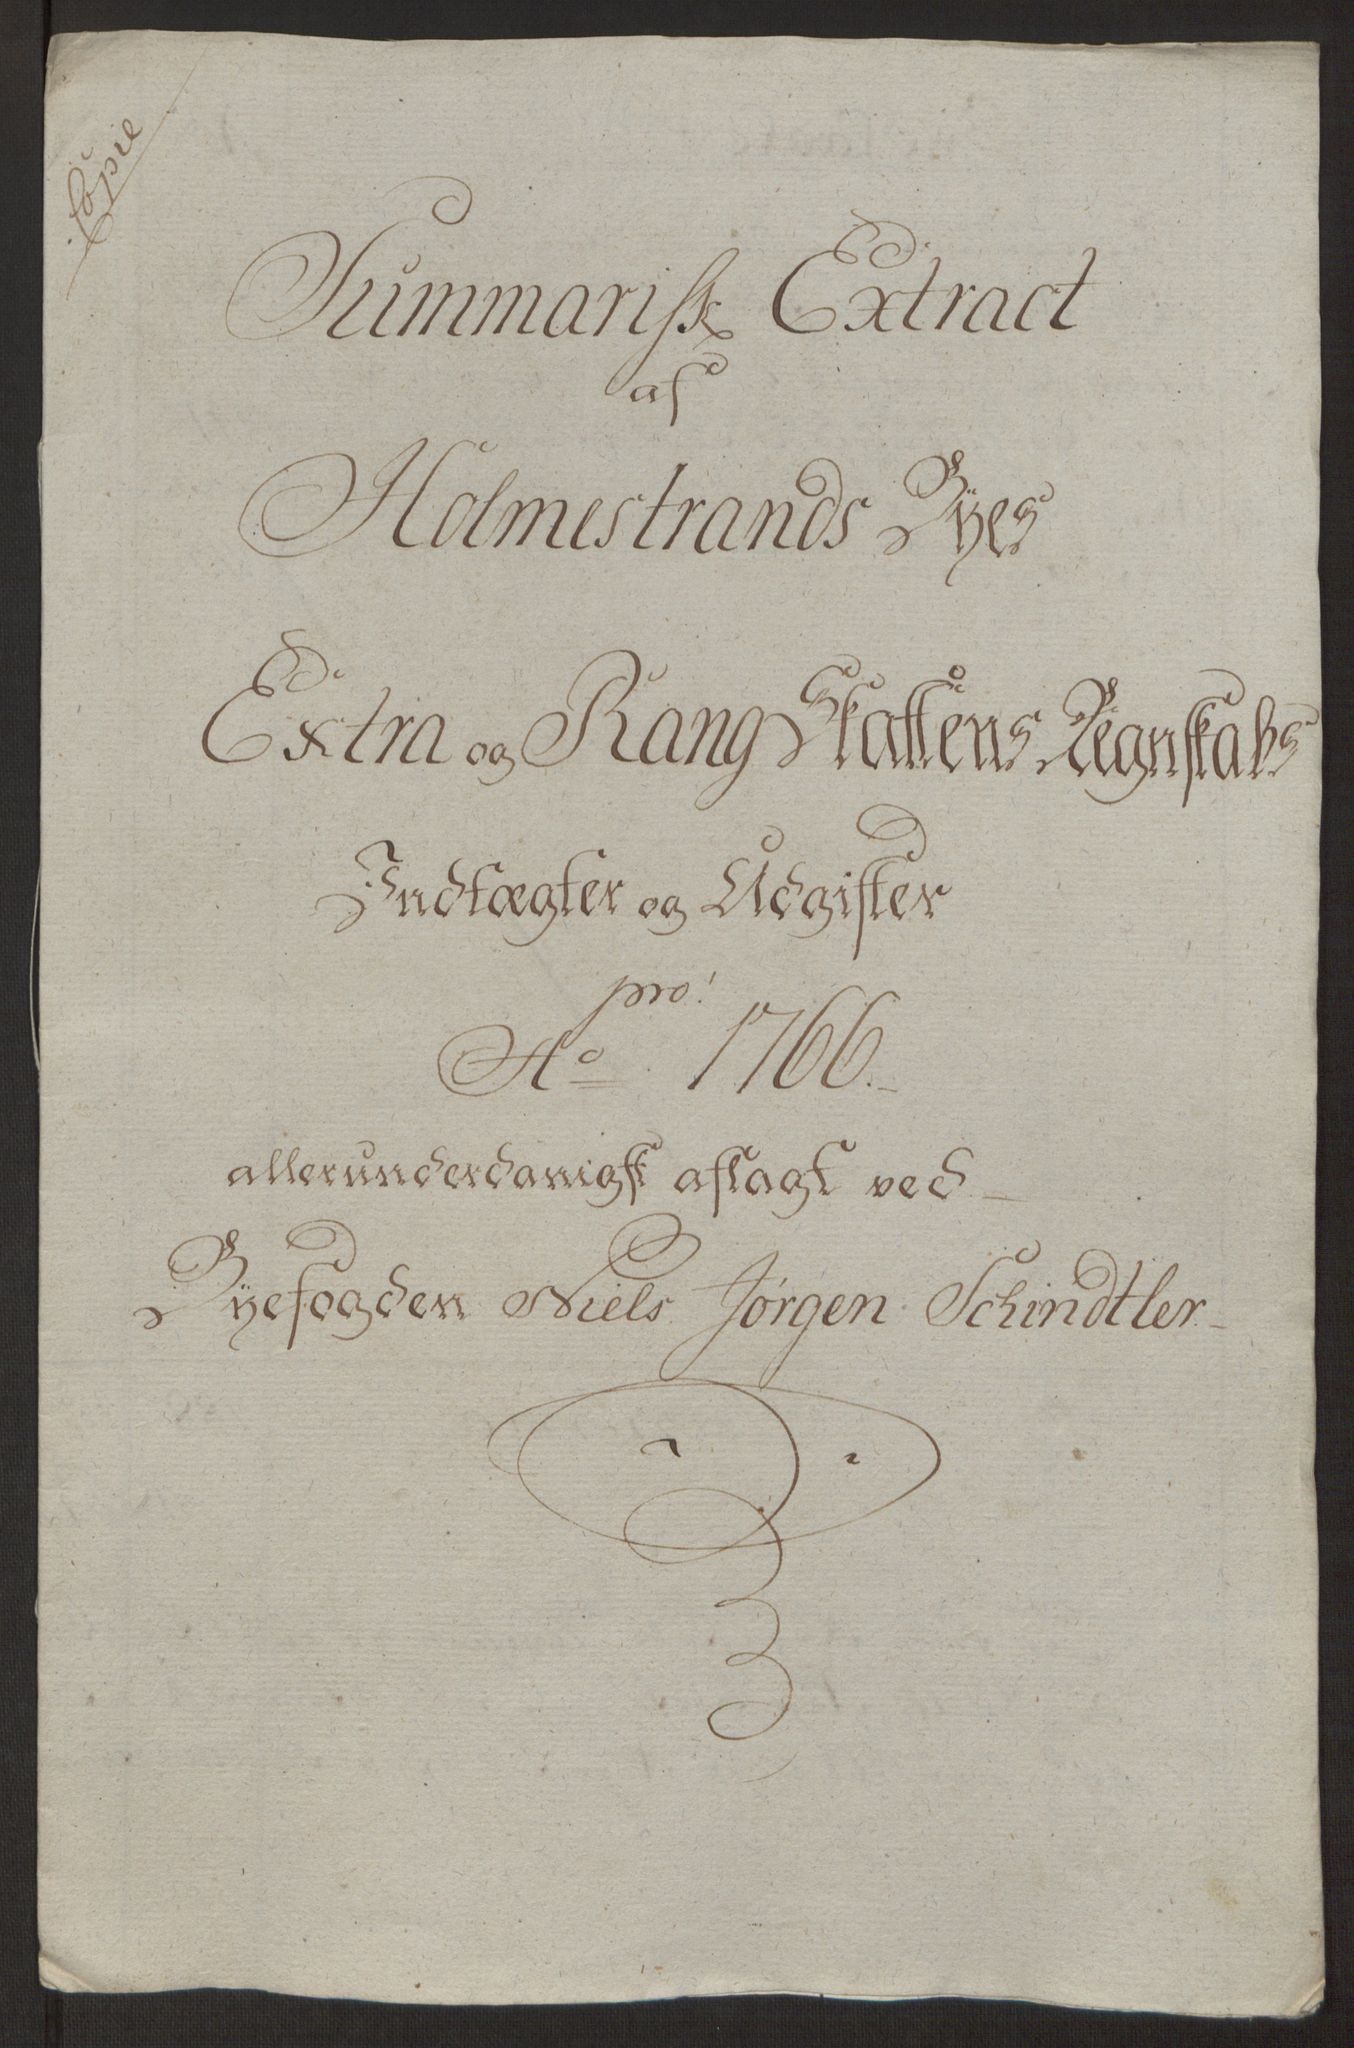 Copie
Summarisk Extract
af
Holmestrands Byes
Extra og Rang Skattens Regnskabs
Indtægter og Udgifter
pro:
Ao 1766.
allerunderdanigst aflagt ved
Byefogden Niels Jørgen Schindtler